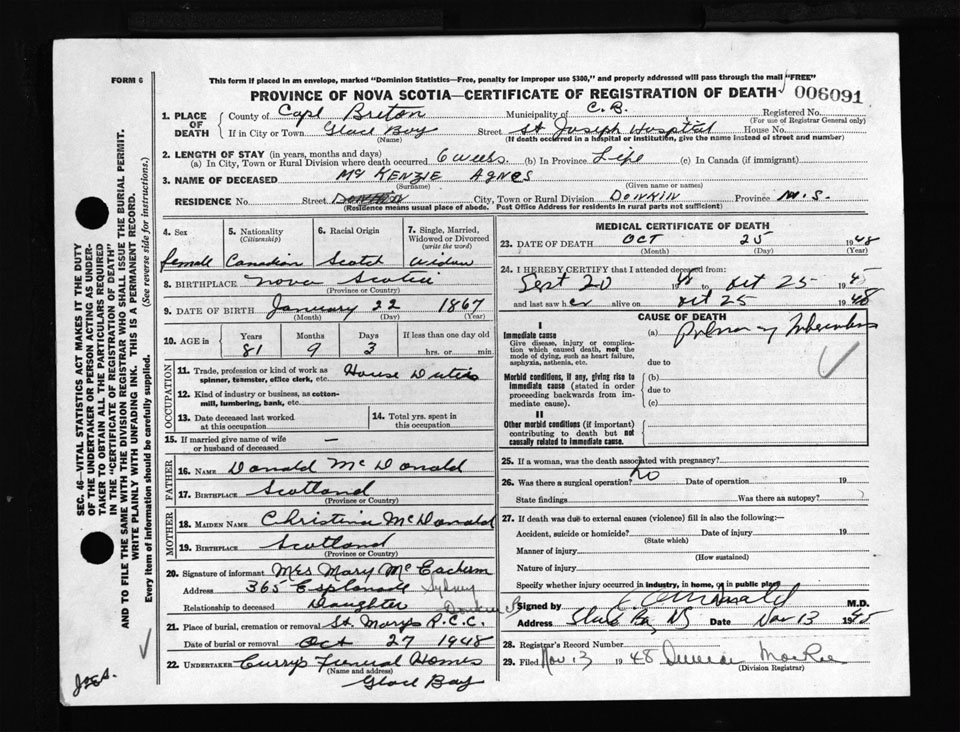 FORM 6
This form if placed in an envelope, marked "Dominion Statistics—Free, penalty for improper use $300," and properly addressed will pass through the mail "FREE"
PROVINCE OF NOVA SCOTIA—CERTIFICATE OF REGISTRATION OF DEATH 006091
1. PLACE OF DEATH
County of Cape Breton Municipality of C.B. Registered No.
(For use of Registrar General only)
If in City or Town Glace Bay Street St Joseph Hospital House No.
(Name) (If death occurred in a hospital or institution, give the name instead of street and number)
2. LENGTH OF STAY (in years, months and days)
(a) In City, Town or Rural Division where death occurred 6 weeks. (b) In Province Life (c) In Canada (if immigrant)
3. NAME OF DECEASED McKENZIE AGNES
(Surname) (Given name or names)
RESIDENCE No. Street Donkin City, Town or Rural Division DONKIN Province N.S.
(Residence means usual place of abode. Post Office Address for residents in rural parts not sufficient)
4. Sex 5. Nationality (Citizenship) 6. Racial Origin 7. Single, Married, Widowed or Divorced (write the word)
female Canadian Scotch Widow
8. BIRTHPLACE Nova Scotia
(Province or Country)
9. DATE OF BIRTH January 22 1867
(Month) (Day) (Year)
10. AGE in Years Months Days If less than one day old
81 9 3 hrs. or min.
OCCUPATION
11. Trade, profession or kind of work as spinner, teamster, office clerk, etc. House Duties
12. Kind of industry or business, as cotton-mill, lumbering, bank, etc.
13. Date deceased last worked at this occupation
14. Total yrs. spent in this occupation
15. If married give name of wife or husband of deceased —
FATHER
16. NAME Donald McDonald
17. BIRTHPLACE Scotland
(Province or Country)
MOTHER
18. MAIDEN NAME Christina McDonald
19. BIRTHPLACE Scotland
(Province or Country)
20. Signature of informant Mrs Mary McEachern
Address 365 Esplanade Sydney
Relationship to deceased Daughter
21. Place of burial, cremation or removal St. Marys R.C.C.
Date of burial or removal Oct 27 1948
22. UNDERTAKER Currys Funeral Homes
(Name and address)
Glace Bay
MEDICAL CERTIFICATE OF DEATH
23. DATE OF DEATH OCT 25 1948
(Month) (Day) (Year)
24. I HEREBY CERTIFY that I attended deceased from:
Sept 20 1948 to Oct 25 1945
and last saw her alive on Oct 25 1948
CAUSE OF DEATH
I
Immediate cause
Give disease, injury or complication which caused death, not the mode of dying, such as heart failure, asphyxia, asthenia, etc.
(a) Pulmonary Tuberculosis
due to
Morbid conditions, if any, giving rise to immediate cause (stated in order proceeding backwards from immediate cause).
(b)
due to
(c)
II
Other morbid conditions (if important) contributing to death but not causally related to immediate cause.
25. If a woman, was the death associated with pregnancy?
26. Was there a surgical operation? no Date of operation 19
State findings Was there an autopsy?
27. If death was due to external causes (violence) fill in also the following:—
Accident, suicide or homicide? Date of injury 19
(State which)
Manner of injury
(How sustained)
Nature of injury
Specify whether injury occurred in industry, in home, or in public place
Signed by M.D.
Address Glace Bay NS Date Nov 13 1945
28. Registrar's Record Number
29. Filed Nov 13 1948 Duncan MacRae
(Division Registrar)
SEC. 46—VITAL STATISTICS ACT MAKES IT THE DUTY
OF THE UNDERTAKER OR PERSON ACTING AS UNDER-
TAKER TO OBTAIN ALL THE PARTICULARS REQUIRED
IN THE "CERTIFICATE OF REGISTRATION OF DEATH"
AND TO FILE THE SAME WITH THE DIVISION REGISTRAR WHO SHALL ISSUE THE BURIAL PERMIT.
WRITE PLAINLY WITH UNFADING INK. THIS IS A PERMANENT RECORD.
Every item of information should be carefully supplied. (See reverse side for instructions.)